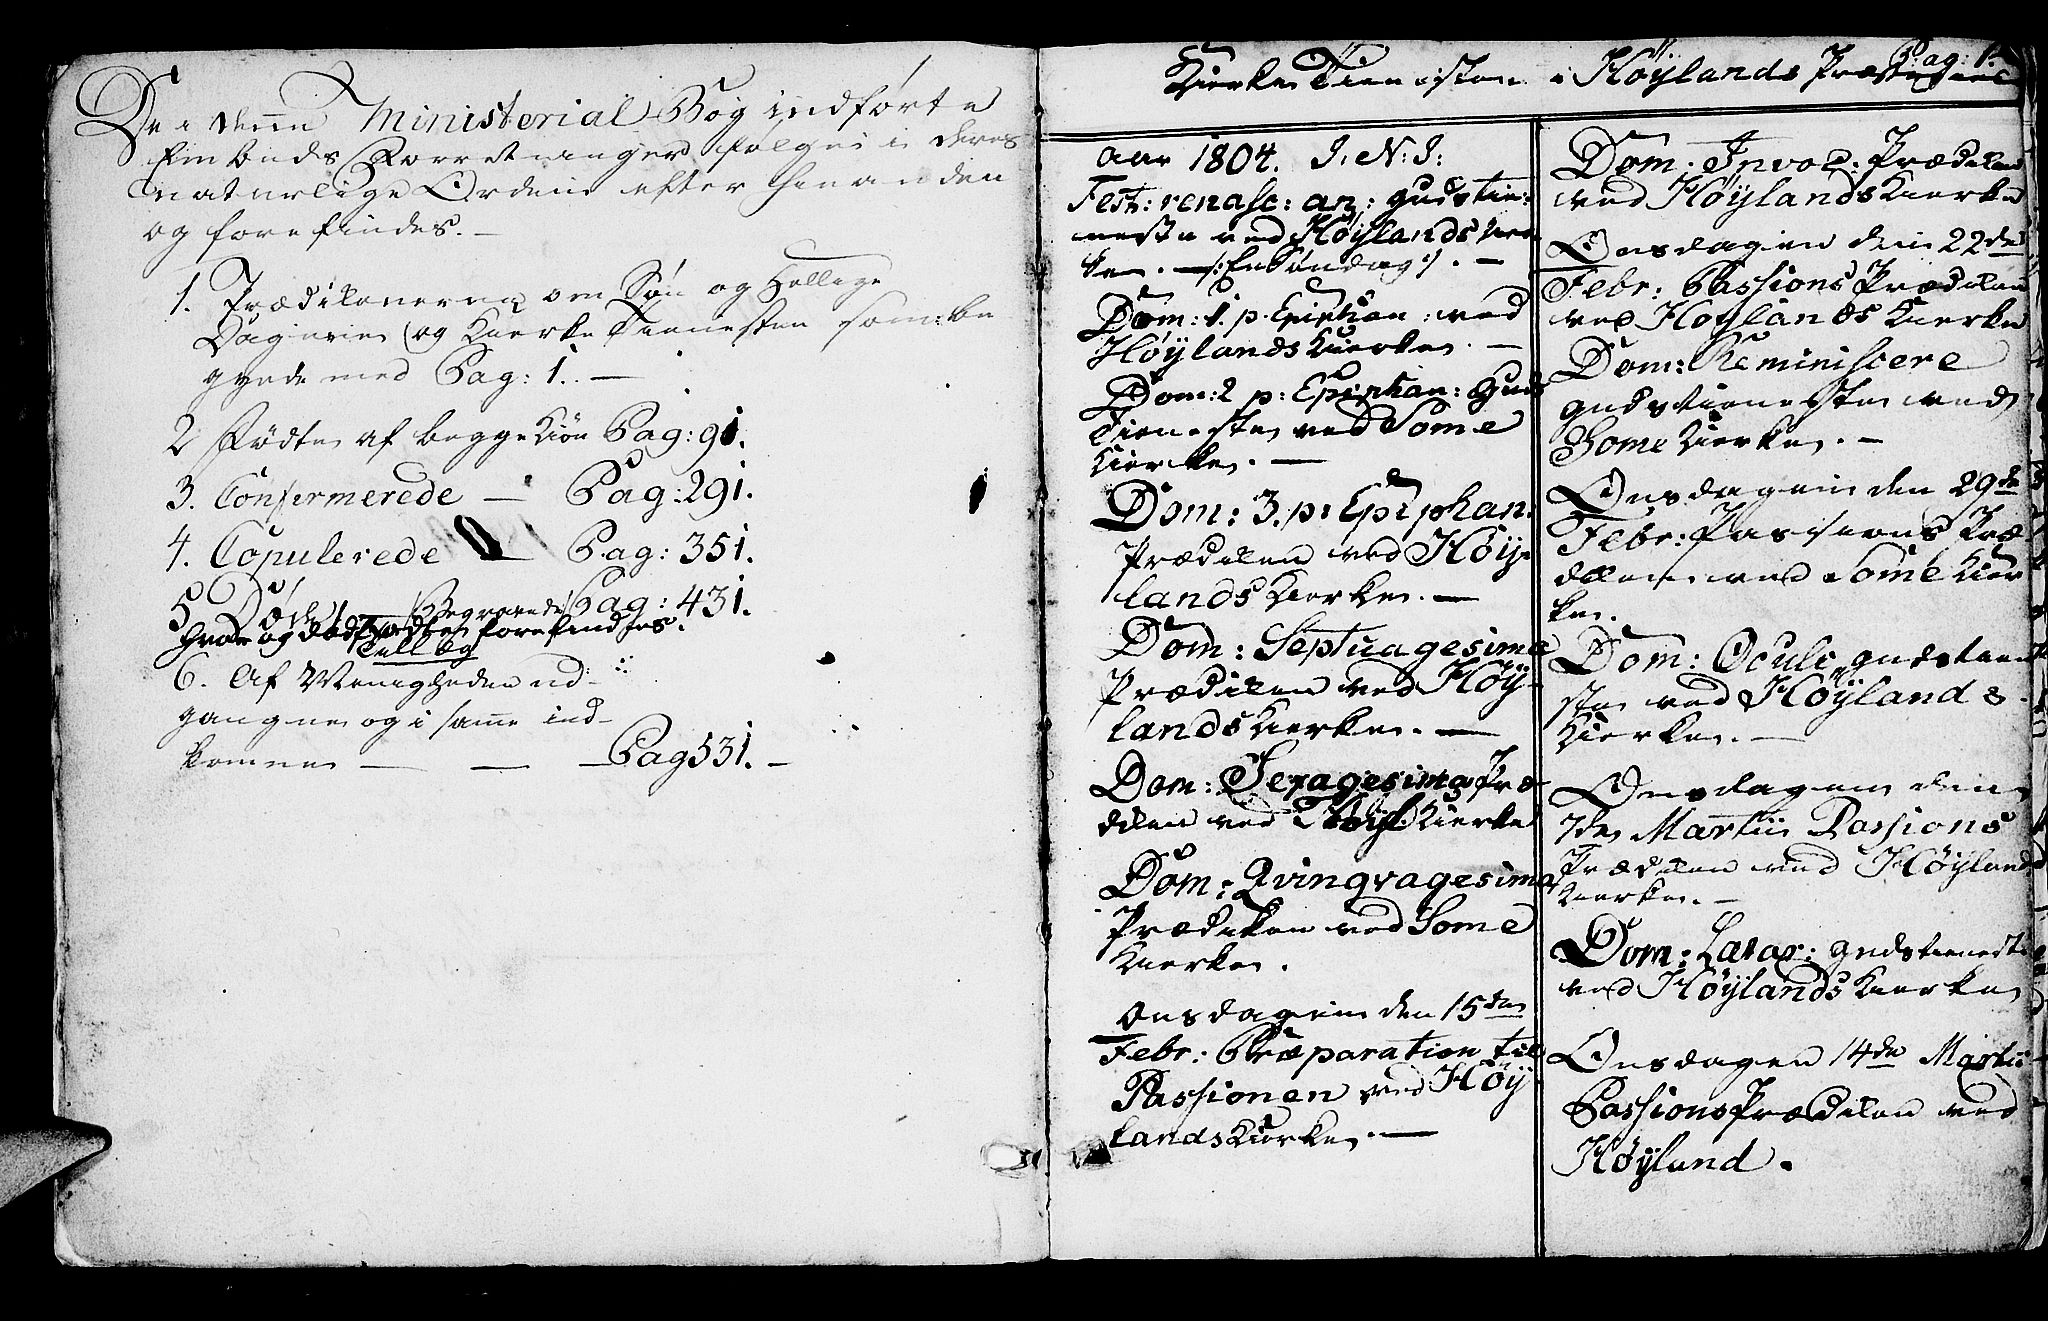 De i denne Ministerial Bog indførte
Embeds Forretninger følges i deres
naturlige Orden efter hinanden
og forefindes. —
1. Prædikenerne om Søn og Hellige
Dagene og Kierke Tienesten som be
gynde med Pag: 1. —
2 Fødte af begge Kiøn Pag: 91.
3. Confirmerede — Pag: 291.
4. Copulerede — Pag: 351.
5. Døde / Begravede Pag: 431.
hvor og dødfødte forefindes.
Till og
6. Af Menigheden ud-
gangne og i samme ind-
komne — — — Pag 531. —
Pag: 1.
Kierke Tienesten i Høylands
Aar 1804. I. N. I:
Fest: renasc: an: gudstie:
neste ved Høylands Kier
ken. — /: En Søndag :/. —
Dom: 1. p. Epiphan: ved
Høylands Kierke. —
Dom: 2 p: Epiphan: Guds
Tieneste ved Some
Kierke. —
Dom: 3. p: Epiphan.
Prædiken ved Høy-
lands Kierke. —
Dom: Septuagesima
Prædiken ved Høy-
lands Kierke. —
Dom: Sexagesima Præ-
diken ved Høyl. Kierke
Dom: Qvinqvagesima
Prædiken ved Some
Kierke.
Onsdagen den 15de
Febr: Præparation til
Passionen ved Høy
lands Kierke. —
Dom. Invoc: Prædiken
ved Høylands Kierke
Onsdagen den 22de
Febr: Passions Prædiken
ved Høylands Kierke
Dom: Reminiscere
gudstieneste ved
Some Kierke. —
Onsdagen den 29de
Febr: Passions Præ
diken ved Some Kier
ke.
Dom: Oculi gudstiene
ste ved Høylands
Kierke. —
Onsdagen den
7de Martii Passions
Prædiken ved Høylands
Kierke. —
Dom: Lætar: gudstieneste
ved Høylands Kierke
Onsdagen 14de Martii
Passions Prædiken ved
Høyland.